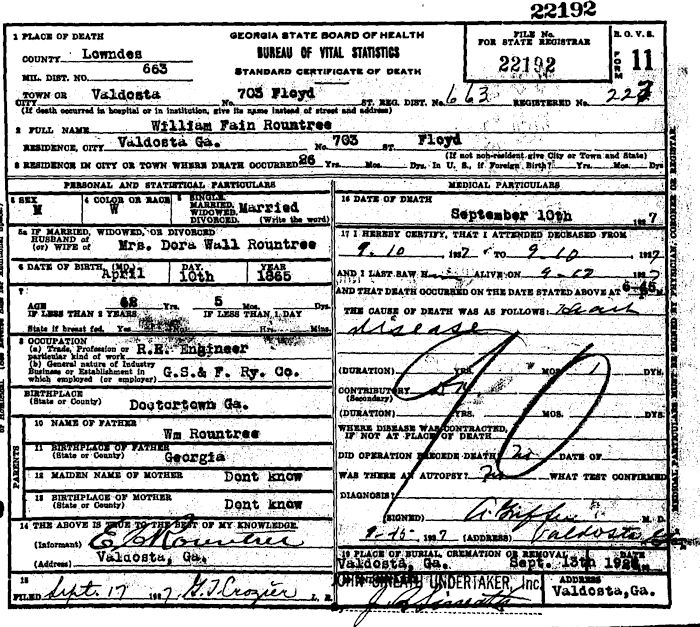 22192
1 PLACE OF DEATH
COUNTY Lowndes
MIL. DIST. NO. 663
TOWN OR CITY Valdosta No. 703 Floyd ST. REG. DIST. No. 663 REGISTERED No.
(If death occurred in hospital or in institution, give its name instead of street and address)
GEORGIA STATE BOARD OF HEALTH
BUREAU OF VITAL STATISTICS
STANDARD CERTIFICATE OF DEATH
FILE No.
FOR STATE REGISTRAR
22192
B. O. V. S.
FORM 11
2 FULL NAME William Fain Rountree
RESIDENCE, CITY Valdosta Ga. No. 703 ST. Floyd
(If not non-resident give City or Town and State)
3 RESIDENCE IN CITY OR TOWN WHERE DEATH OCCURRED 26 Yrs. Mos. Dys. In U. S., if Foreign Birth? Yrs. Mos. Dys.
PERSONAL AND STATISTICAL PARTICULARS
3 SEX M
4 COLOR OR RACE W
5 SINGLE, MARRIED, WIDOWED, DIVORCED. Married
(Write the word)
5a IF MARRIED, WIDOWED, OR DIVORCED
HUSBAND of
(or) WIFE of Mrs. Dora Wall Rountree
6 DATE OF BIRTH (MO.) April DAY, 10th YEAR 1865
7 AGE Yrs. 5 Mos. Dys.
IF LESS THAN 2 YEARS IF LESS THAN 1 DAY
State if breast fed. Yes Hrs. Mins.
8 OCCUPATION
(a) Trade, Profession or particular kind of work R.R. Engineer
(b) General nature of Industry Business or Establishment in which employed (or employer) G.S.& F. Ry. Co.
BIRTHPLACE
(State or County) Doctortown Ga.
PARENTS
10 NAME OF FATHER Wm Rountree
11 BIRTHPLACE OF FATHER
(State or County) Georgia
12 MAIDEN NAME OF MOTHER Dont know
13 BIRTHPLACE OF MOTHER
(State or County) Dont know
14 THE ABOVE IS TRUE TO THE BEST OF MY KNOWLEDGE.
(Informant) Rountree
(Address) Valdosta, Ga.
15
FILED Sept. 17 1927 G.T. Crozier L. R.
MEDICAL PARTICULARS
16 DATE OF DEATH
September 10th 1927
17 I HEREBY CERTIFY, THAT I ATTENDED DECEASED FROM
9-10 1927 TO 9-10 1927
AND I LAST SAW H ALIVE ON 1927
AND THAT DEATH OCCURRED ON THE DATE STATED ABOVE AT 6-45 M.
THE CAUSE OF DEATH WAS AS FOLLOWS: Heart
disease
90
(DURATION) YRS. MOS. DYS.
CONTRIBUTORY
(Secondary)
(DURATION) YRS. MOS. DYS.
WHERE DISEASE WAS CONTRACTED,
IF NOT AT PLACE OF DEATH
DID OPERATION PRECEDE DEATH no DATE OF
WAS THERE AN AUTOPSY? no WHAT TEST CONFIRMED
DIAGNOSIS?
(SIGNED) A Griffin M. D.
9-15 1927 (ADDRESS) Valdosta
19 PLACE OF BURIAL, CREMATION OR REMOVAL DATE
Valdosta, Ga. Sept. 13th
UNDERTAKER, Inc.
ADDRESS
Valdosta, Ga.